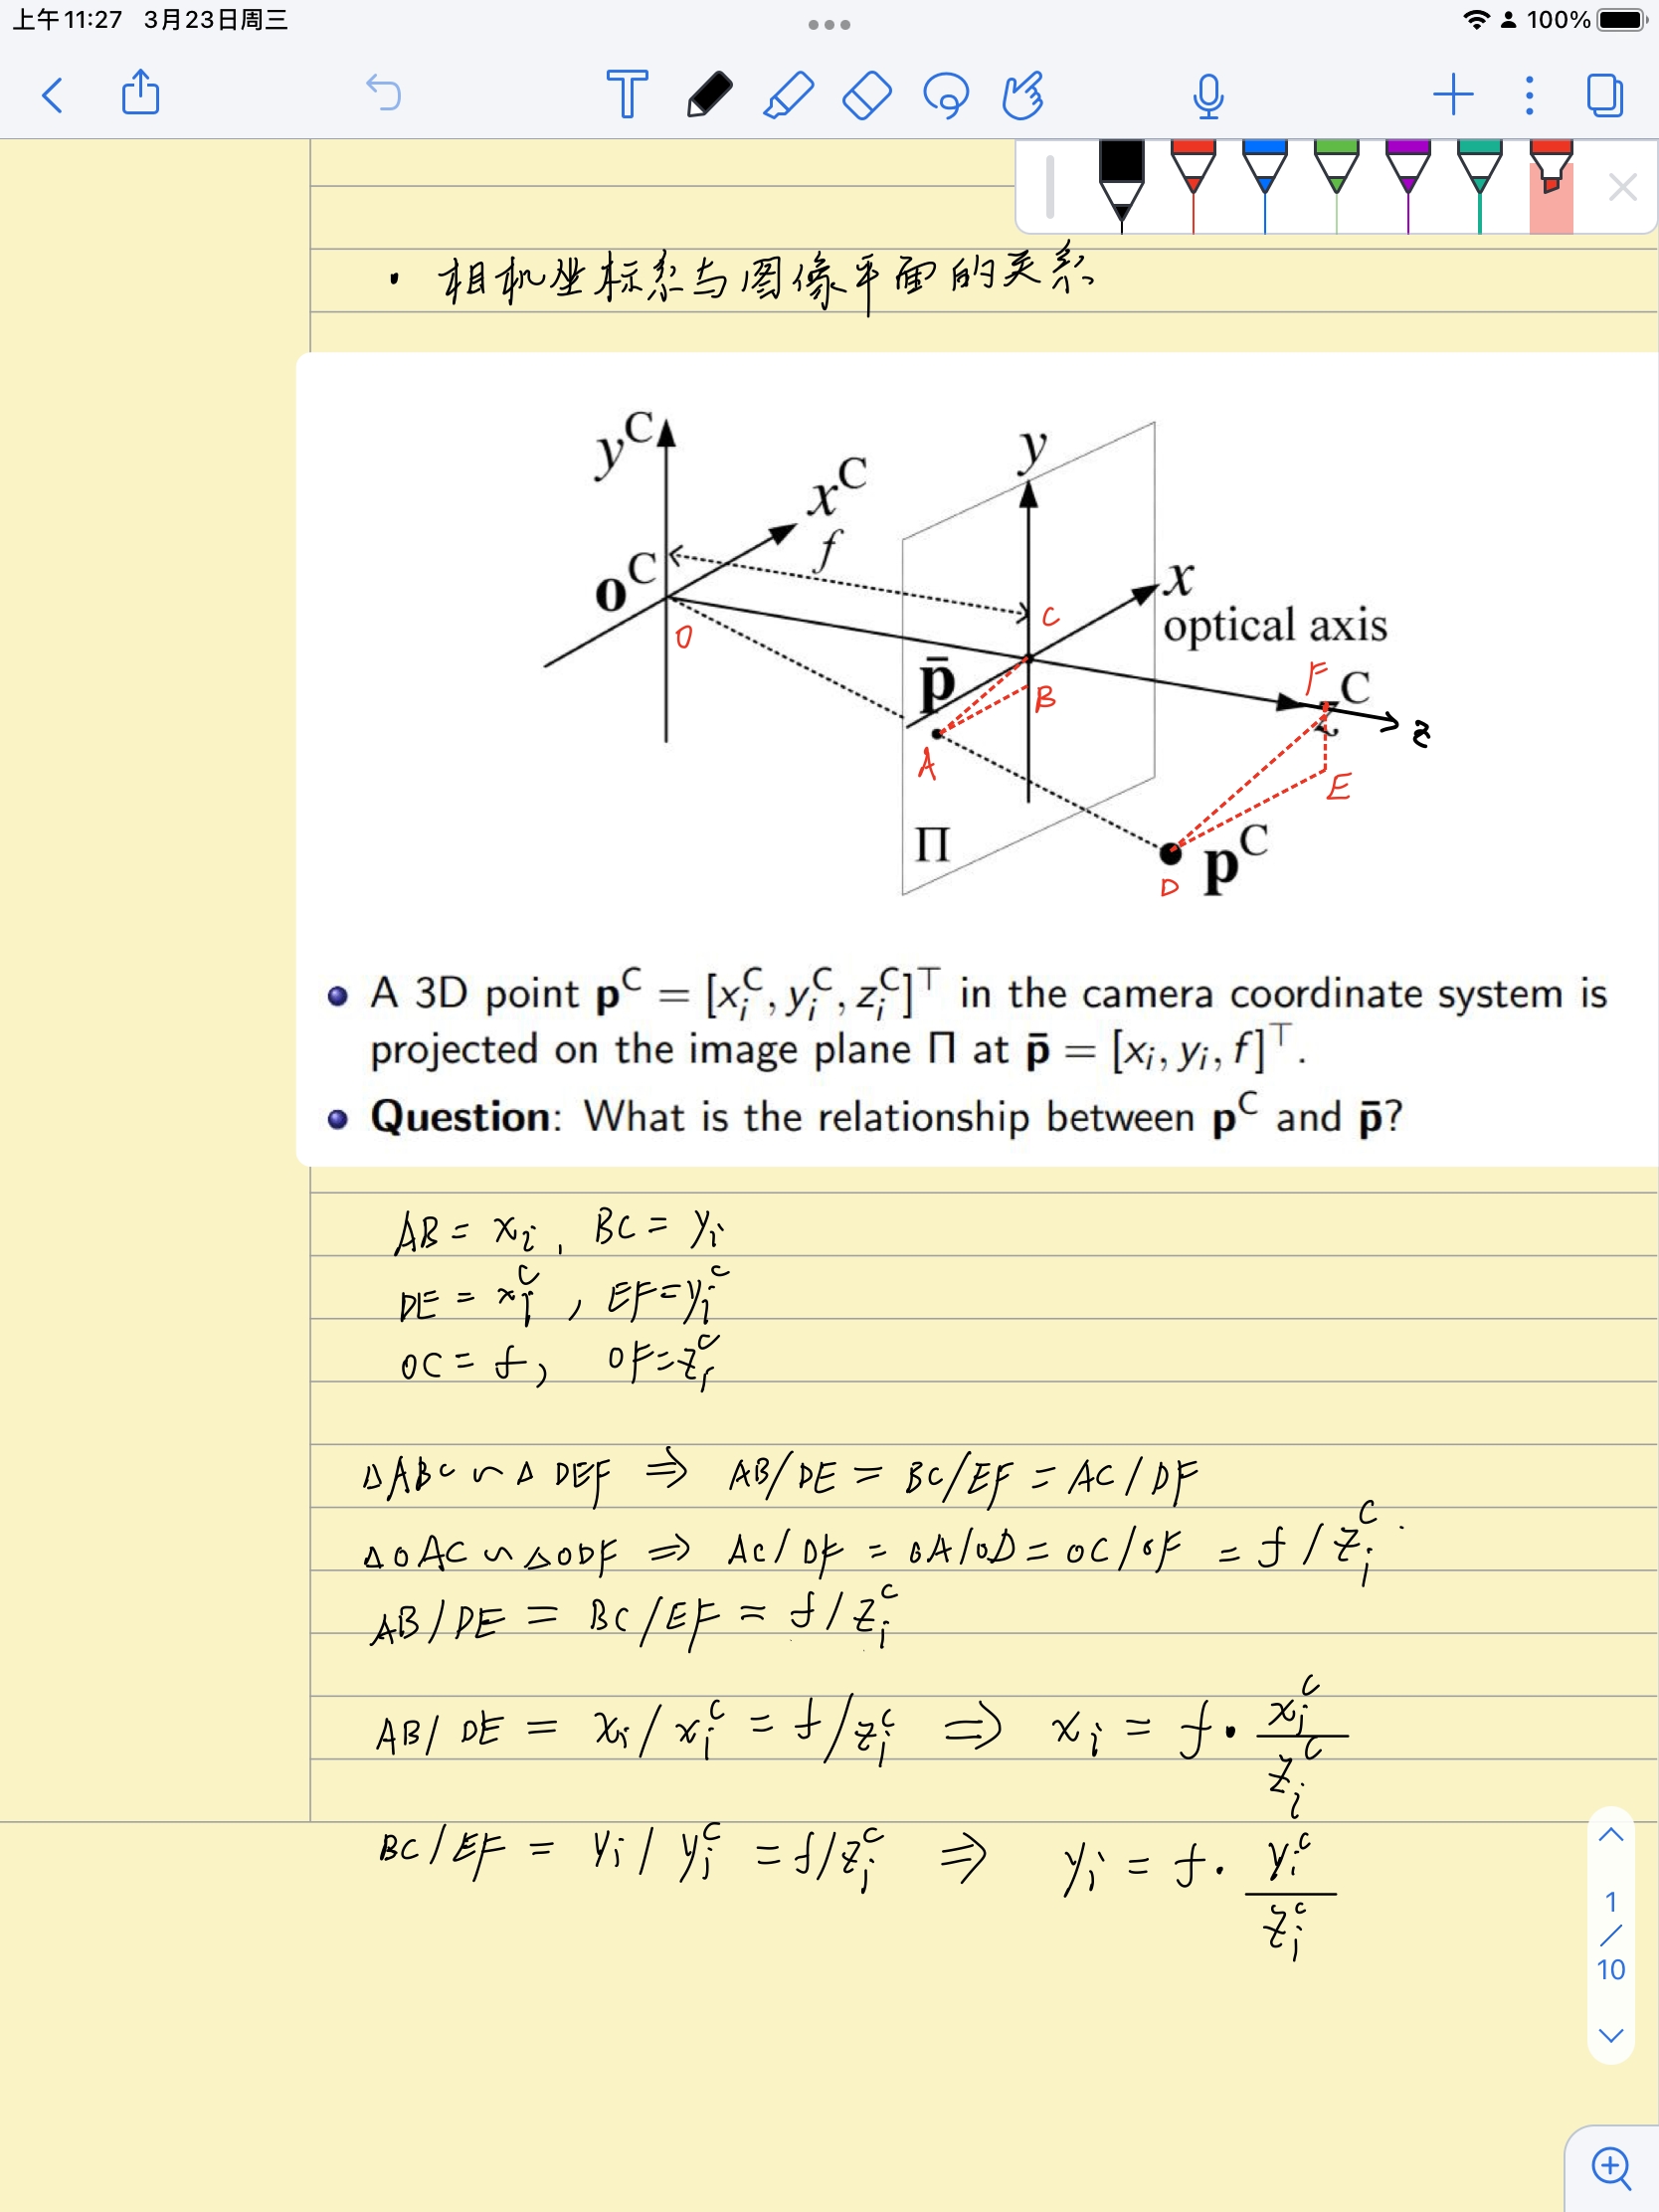 上午11:27 3月23日周三
100%
• 相机坐标系与图像平面的关系
y^C
x^C
f
o^C
O
y
x
optical axis
C
p̄
B
A
F
z^C
z
E
Π
p^C
D
• A 3D point p^C = [x_i^C, y_i^C, z_i^C]^⊤ in the camera coordinate system is
projected on the image plane Π at p̄ = [x_i, y_i, f]^⊤.
• Question: What is the relationship between p^C and p̄?
AB = x_i, BC = y_i
DE = x_i^C, EF = y_i^C
OC = f, OF = z_i^C
△ABC ∽ △DEF ⇒ AB/DE = BC/EF = AC/DF
△OAC ∽ △ODF ⇒ AC/DF = OA/OD = OC/OF = f/z_i^C.
AB/DE = BC/EF = f/z_i^C
AB/DE = x_i/x_i^C = f/z_i^C ⇒ x_i = f · x_i^C / z_i^C
BC/EF = y_i/y_i^C = f/z_i^C ⇒ y_i = f · y_i^C / z_i^C
1
/
10